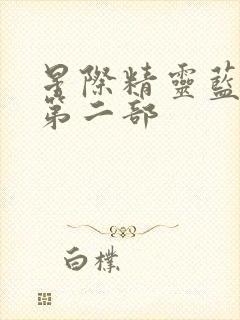 星際精靈藍
第二部
白樸